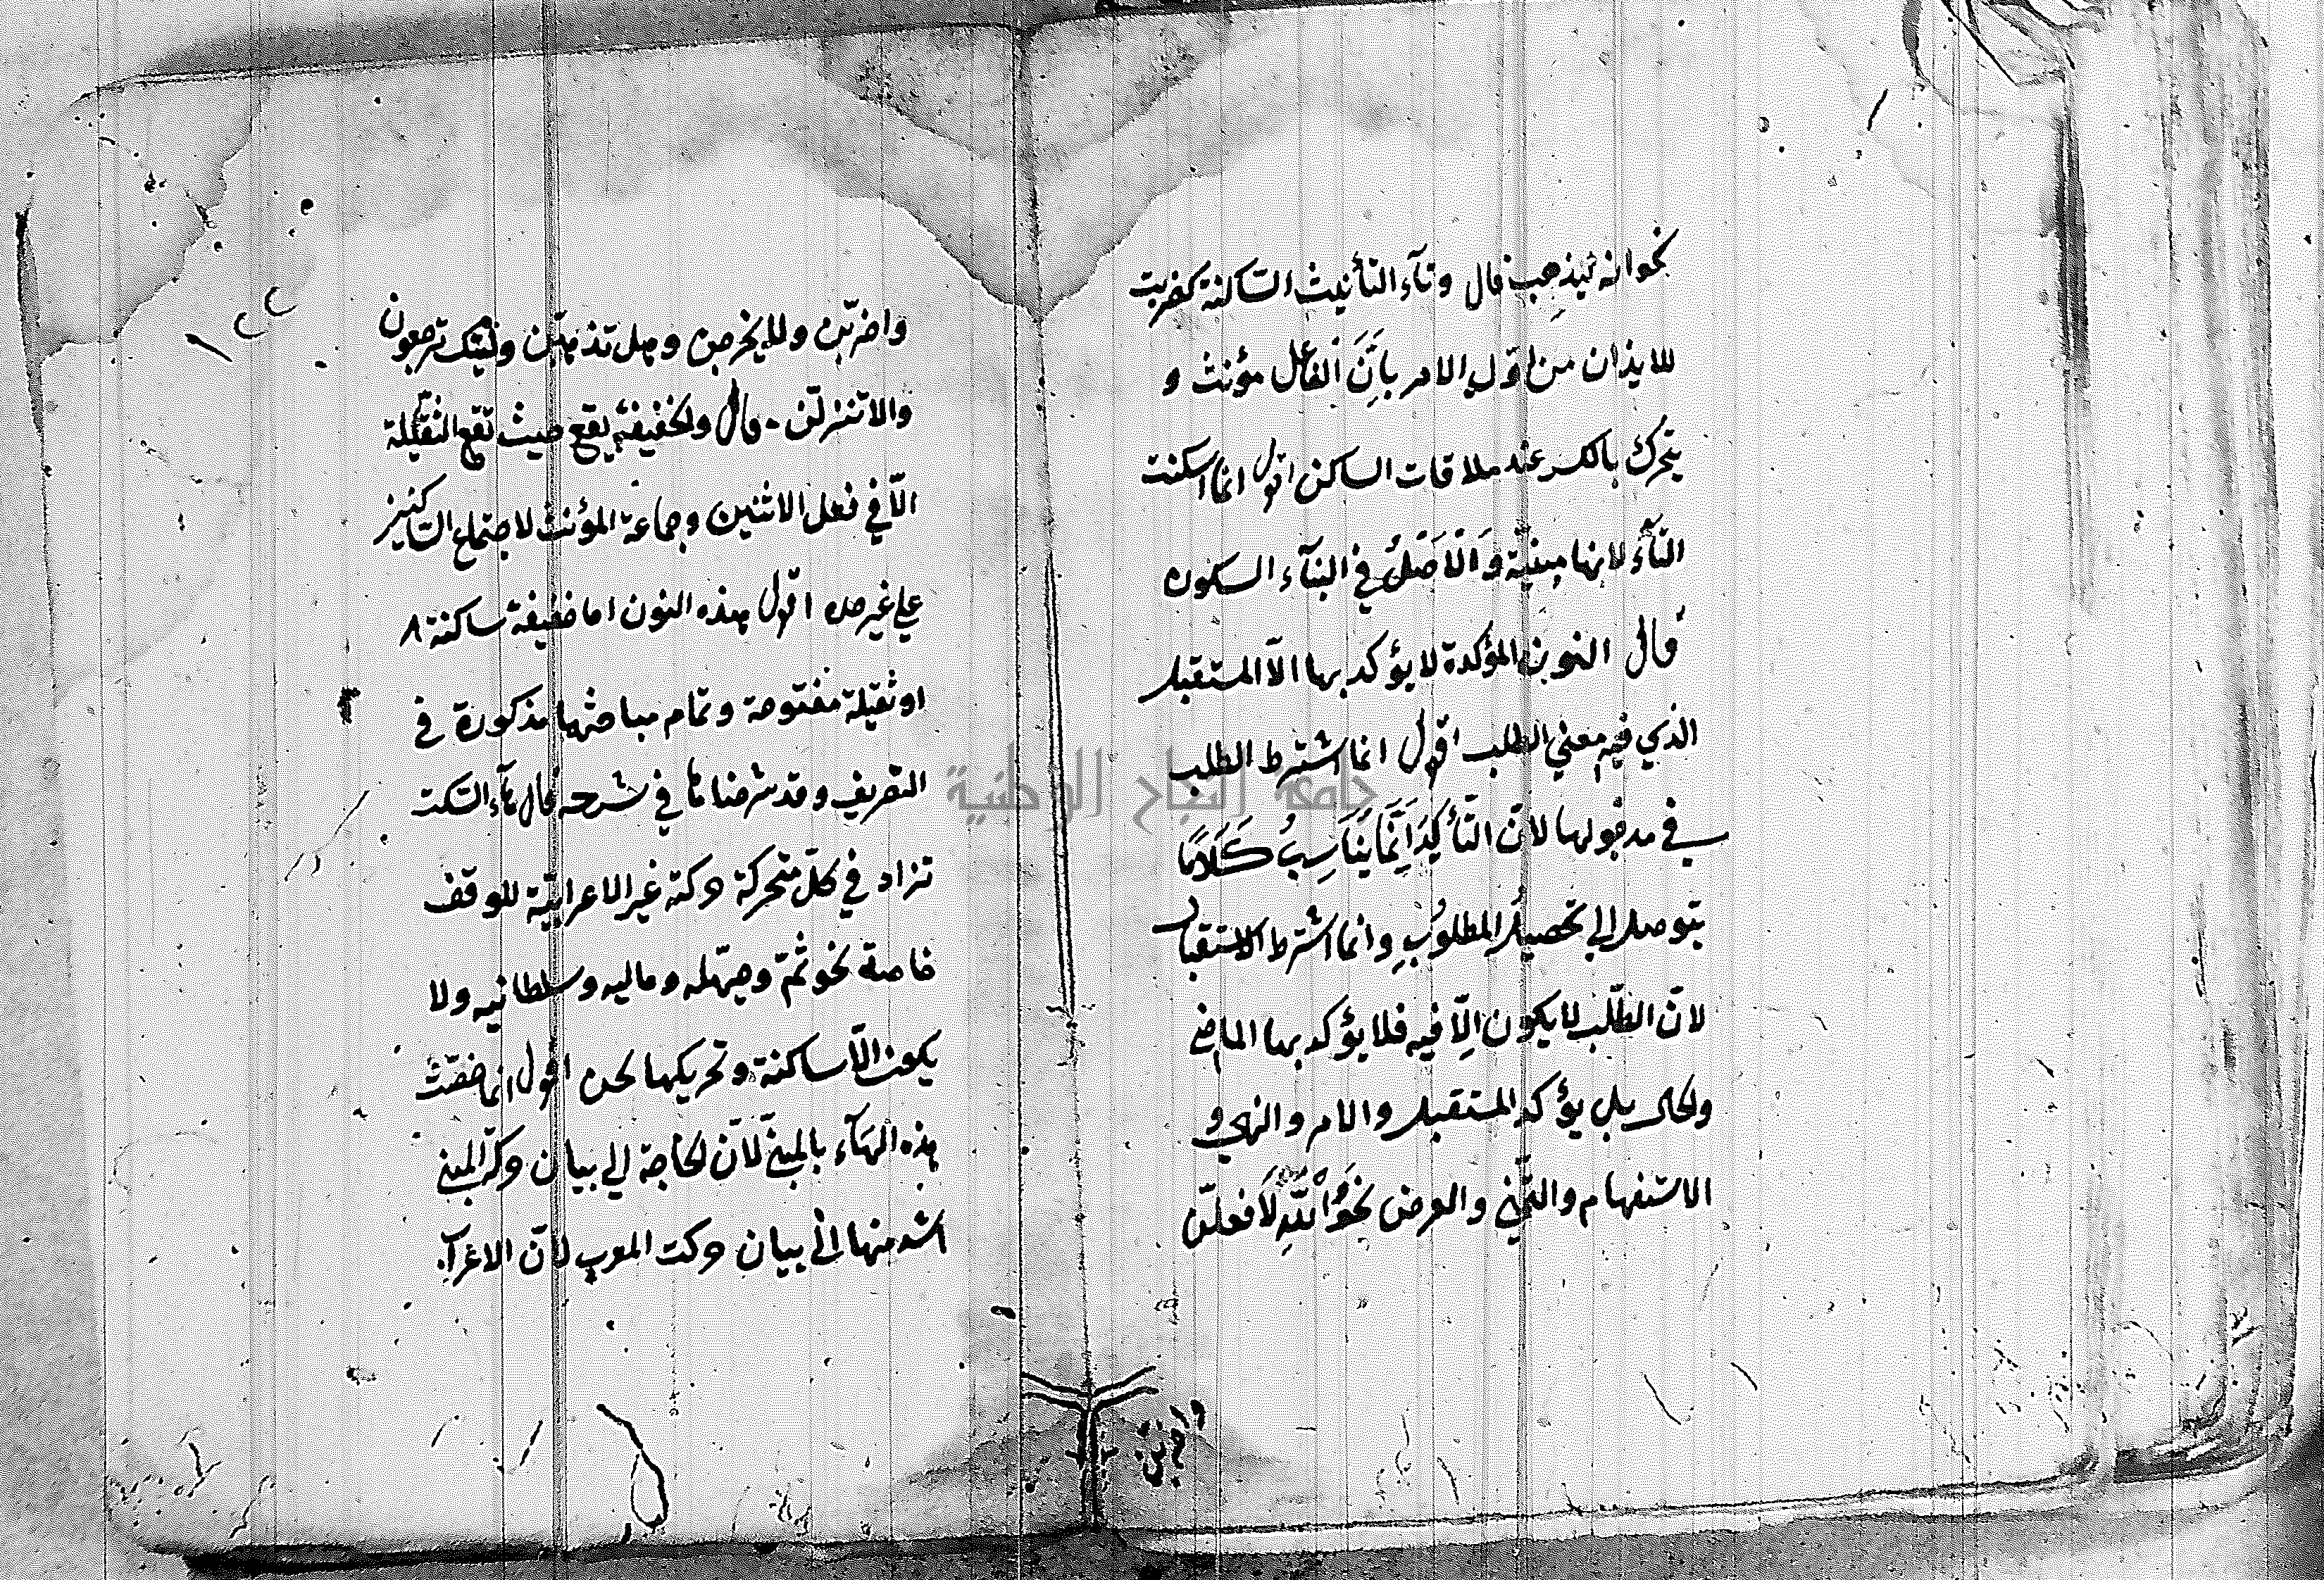 نحو انه ليذهب قال وتآء التأنيث الساكنة كضربت
للايذان من اوّل الامر بِأَنَّ الفاعل مؤنث و
يتحرك بالكسر عند ملاقات الساكن اقول انما اسكنت
التآء لانها مبنيّة وَالْاَصْلُ في البنآء السكون
قال النون المؤكدة لا يؤكد بها الّا المستقبل
الذي فيه معني الطلب اقول انما اشترط الطلب
في مدخولها لانّ التّأكيدَ اِنَّمَا يُنَاسِبُ كَلَامًا
يتوصل الي تحصيل المطلوبِ وانما اشترط الاستقبال
لانّ الطّلب لا يكون اِلّا فيه فلا يؤكد بها الماضي
والحال بل يؤكد المستقبل والامر والنهي و
الاستفهام والتمنّي والعرض نحو اللّهِ لَاَفعلنّ
واضربنّ
واضربنّ ولا يخرجنّ وهل تذهبنّ وليتك ترجعون
والا تنزلنّ قال والخفيفة يقع حيث تقع الثقيلة
الّا في فعل الاثنين وجماعة المؤنث لاجتماع الساكنين
علي غير حده اقول هذه النون اما خفيفة ساكنة
او ثقيلة مفتوحة وتمام مباحثها مذكورة في
التصريف وقد شرحناها في شرحه قال هآء السكت
تزاد في كلّ متحركة حركة غير الاعرابيّة للوقف
خاصة نحو ثمّه وحيّهله وماليه وسلطانيه ولا
يكون الّا ساكنة وتحريكها لحن اقول انما خصّت
هذه الهآء بالمبنيّ لانّ الحاجة الي بيان حركة المبني
اشد منها الي بيان حركت المعرب لانّ الاعراب
١٢٢
جامعة النجاح الوطنية